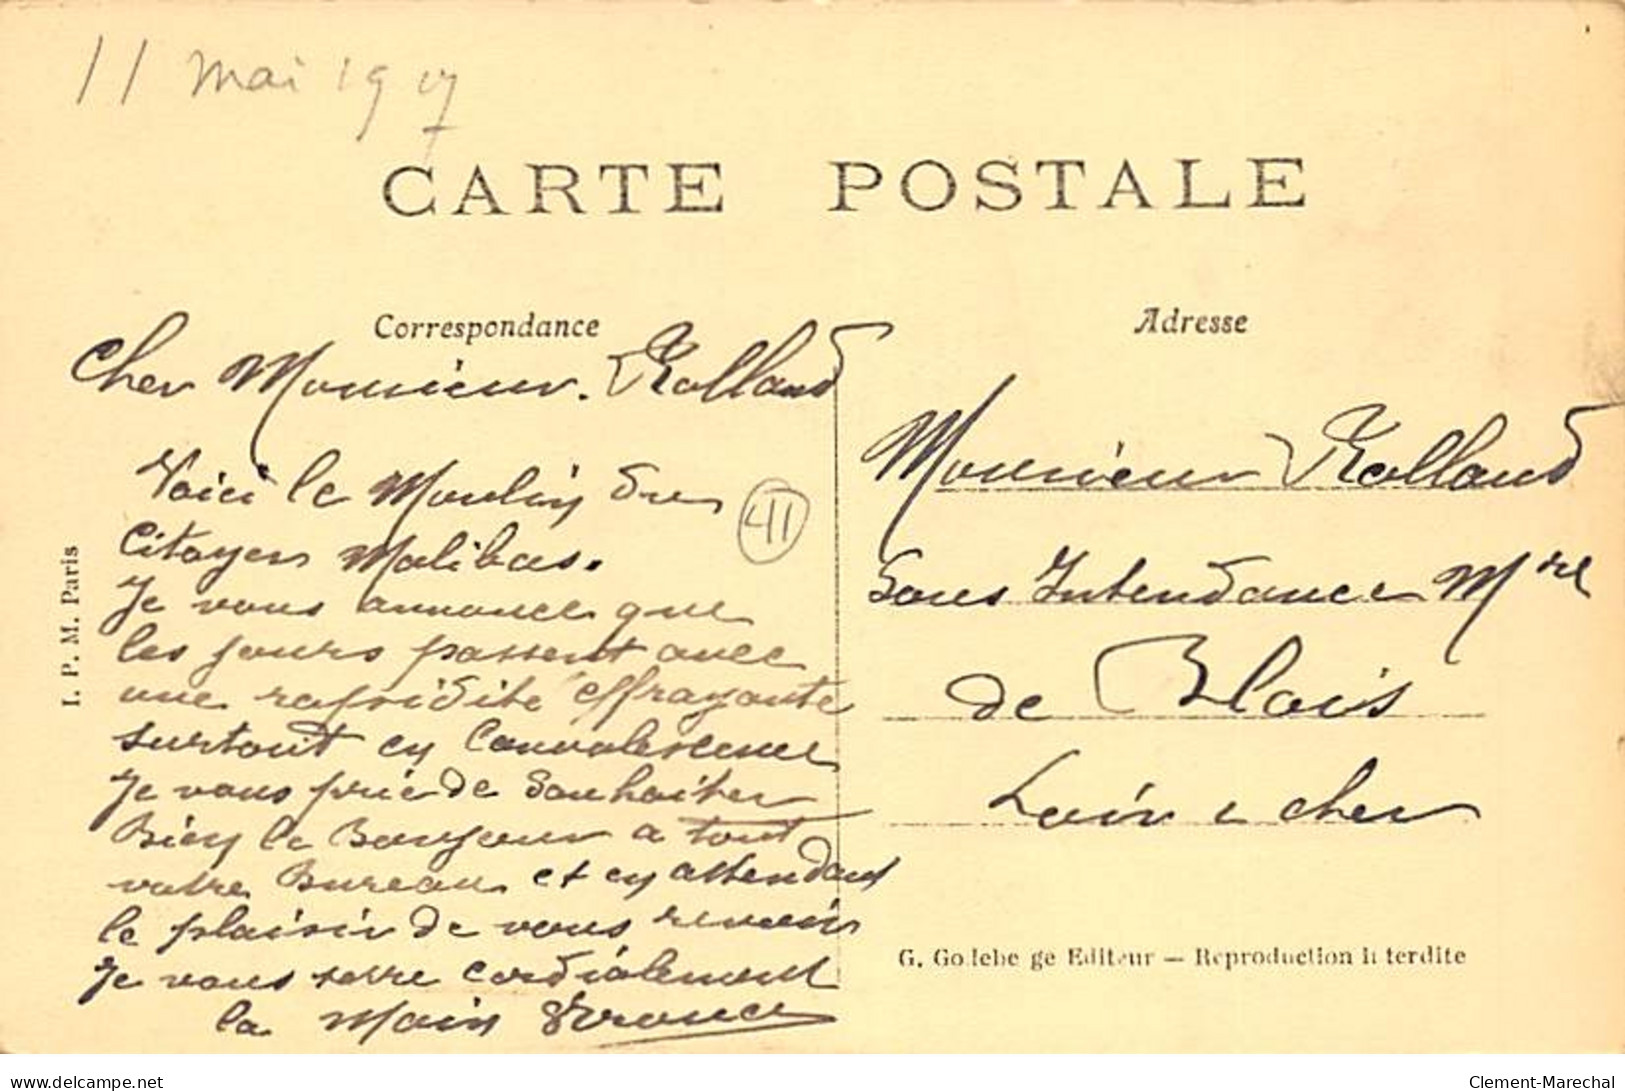 11 mai 1917
CARTE POSTALE
Correspondance
Adresse
Cher Monsieur. Rolland
Voici le Moulin du
Citoyen Malibas.
Je vous annonce que
les jours passent avec
une rapidité effrayante
surtout en Convalescence
Je vous prie de Souhaiter
Bien le Bonjour a tout
votre Bureau et en attendant
le plaisir de vous revoir
Je vous serre cordialement
la Main
41
I. P. M. Paris
Monsieur Rolland
Sous Intendance Mre
de Blois
Loir & cher
G. Gollebe ge Editeur — Reproduction i terdite
www.delcampe.net
Clement-Marechal